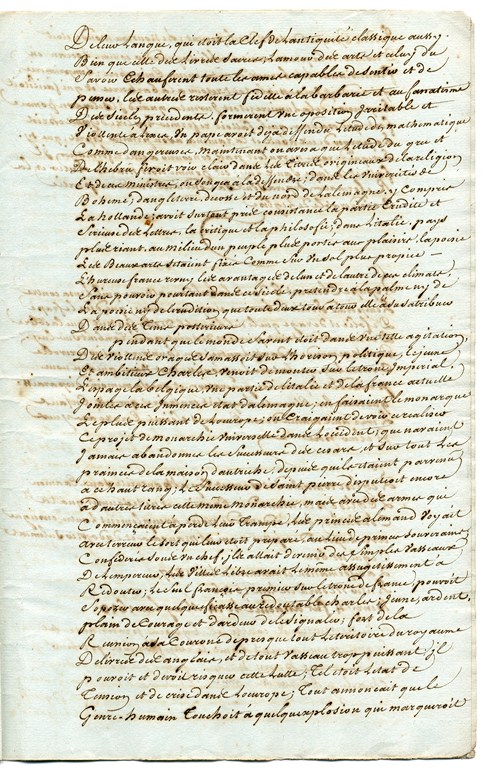 De leur Langue, qui étoit la Clef de L'antiquité Classique aussy
Bien que celle des Livres Sacrés, L'amour des arts et celuy du
Savoir Echauferent toute les ames capables de Sentir et de
penser, Les autres resterent fidelle a la barbarie et au fanatisme
Des Siecles précédents, formerent une oposition Irritable et
Violente a Lines, Un pape avoit deja deffendu L'etude des mathematique
Comme dangereuses, maintenant on avoit que L'etude du grec et
De L'hebreu feroit voir clair dans les titres origineaux de la religion
Et de ses ministres, on Songea a la deffendre; dans les universités de
Boheme; d'angleterre, d'ecosse et du nord de l'allemagne, y Compris
La hollande; avoit Surtout pris Consistance la partie Erudite et
Serieuse des Lettres, la Critique et la philosofie; dans L'italie, pays
plus riant, au milieu d'un peuple plus portés aux plaisirs, la poesie
Les Beaux arts s'etaient fixés Comme Sur un Sol plus propice —
L'hureuse france reuny, les avantages de l'un et de l'autre de ces climats,
Sans pouvoir pourtant dans ce Siecle, pretendre a la palme ny de
La poesie ny de L'erudition, que toute deux tour a tour elle a Su S'atribuer
Dans des tems posterieurs
pendant que le monde Savent étoit dans une telle agitation,
Des violens orages S'amassoit Sur L'horison, politique, le jeune
Et ambitieux Charles, venoit de monter Sur le trone Imperial,
L'espagne la belgique, une partie de l'italie et de la france actuelle
Jointes a ces Inmences etat d'alemagne; en faisaient le monarque
Le plus puissant de L'europe; on Craignait de voir se realiser
Ce projet de monarchie Universelle dans L'occident; que n'avaient
Jamais abandonnés les Successeurs des Césars, et Sur tout les
princes de la maison d'autriche, depuis qu'ils etaient parvenu
a ce haut rang; Le Successeur de Saint pierre disputoit encore
a d'autres titres cette meme monarchie, mais avec des armes que
Commençaint a perdre leur trampe, Les princes alemand voyait
avec terreur le sort qui leur étoit preparé, au lieu de princes Souverains
Considérés Sous un chef, ils allait devenir des Simples vassaux
De L'empereur, Les villes libre avait le même assugetissement a
Redouter; Le Seul françois premier Sur le trone de france, pouvoit
S'oposer avec quelque Efficasse au redoutable charles; Jeune, ardent,
plain de Courage et d'ardeur de se Signaler; fort de la
Reunion a Sa Couronne de presque tout le territoire du royaume
Delivré des anglais, et de tout vassau trop puissant, il
pouvoit et devoit risquer cette Lutte; Tel étoit L'etat de
Tension et de crise dans L'europe; Tout annoncait que le
Genre-humain Touchoit a quelque explosion qui marqueroit